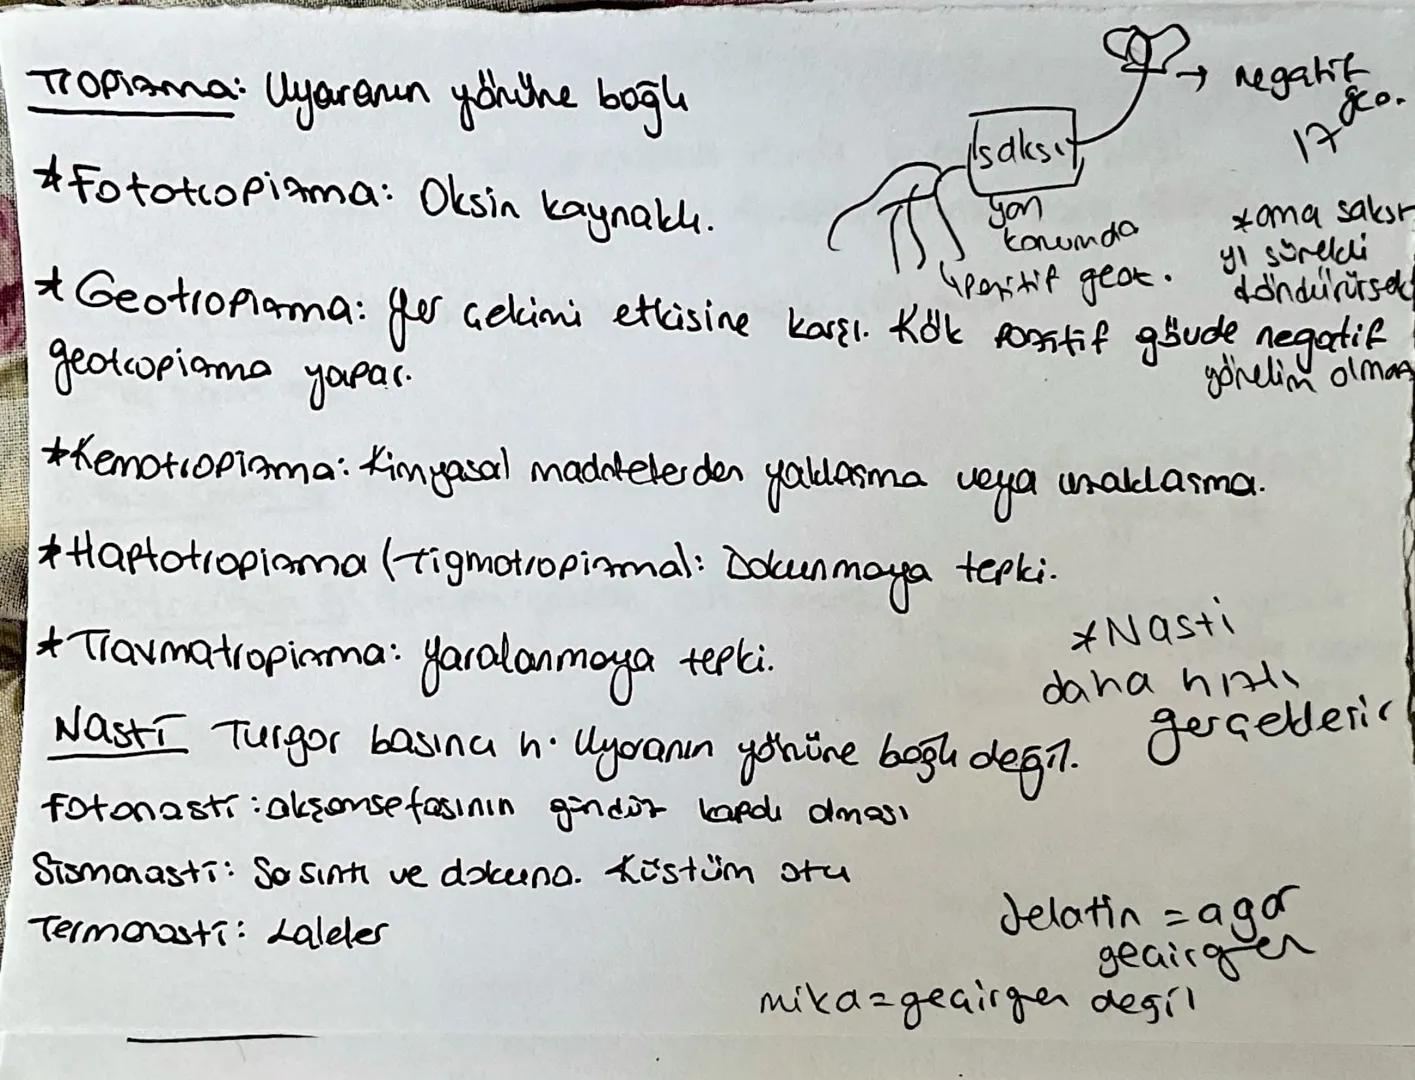 Tropizma: Uyaranın yönüne bağlı
→ negatif
geo.
saksı
*Fototropizma: Oksin kaynaklı.
yan
konumda
↳pozitif geot.
*ama saksı
yı sürekli
döndürürsek
yönelim olmaz
*Geotropizma: Yer çekimi etkisine karşı. Kök pozitif gövde negatif
geotropizma yapar.
*Kemotropizma: Kimyasal maddelerden yaklaşma veya uzaklaşma.
*Haptotropizma (Tigmotropizma): Dokunmaya tepki.
*Travmatropizma: yaralanmaya tepki.
*Nasti
daha hızlı
gerçekleşir
Nasti Turgor basıncı h. Uyaranın yönüne bağlı değil.
Fotonasti: akşamsefasının gündüz kapalı olması
Sismonasti: Sarsıntı ve dokuna. Küstüm otu
Termonasti: Laleler
Jelatin = agar
geçirgen
mika = geçirgen değil